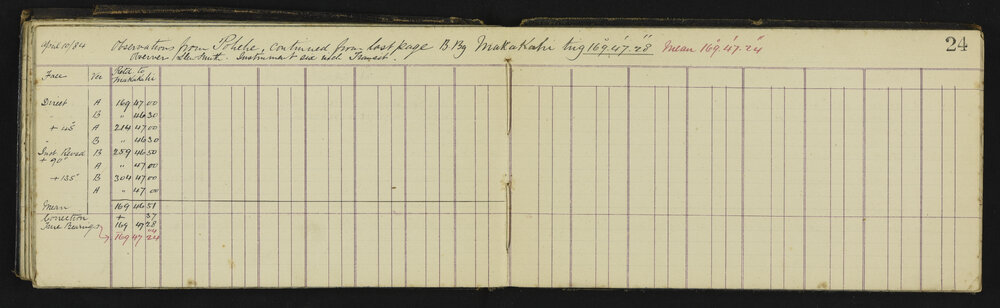 April 10/84 Observations from Pohehe, continued from last page B Bg Makakahi trig 169° 47' 28" Mean 169° 47' 24" 24
Observer Instrument six inch Transit.
Face Ver Refd to Makakahi
Direct A 169 47 00
" B " 46 30
+ 45° A 214 47 00
" B " 46 30
Inst Revsd + 90° B 259 46 50
A " 47 00
+ 135° B 304 47 00
A " 47 00
Mean 169 46 51
Correction + 37
True Bearing 169 47 28
169 47 24